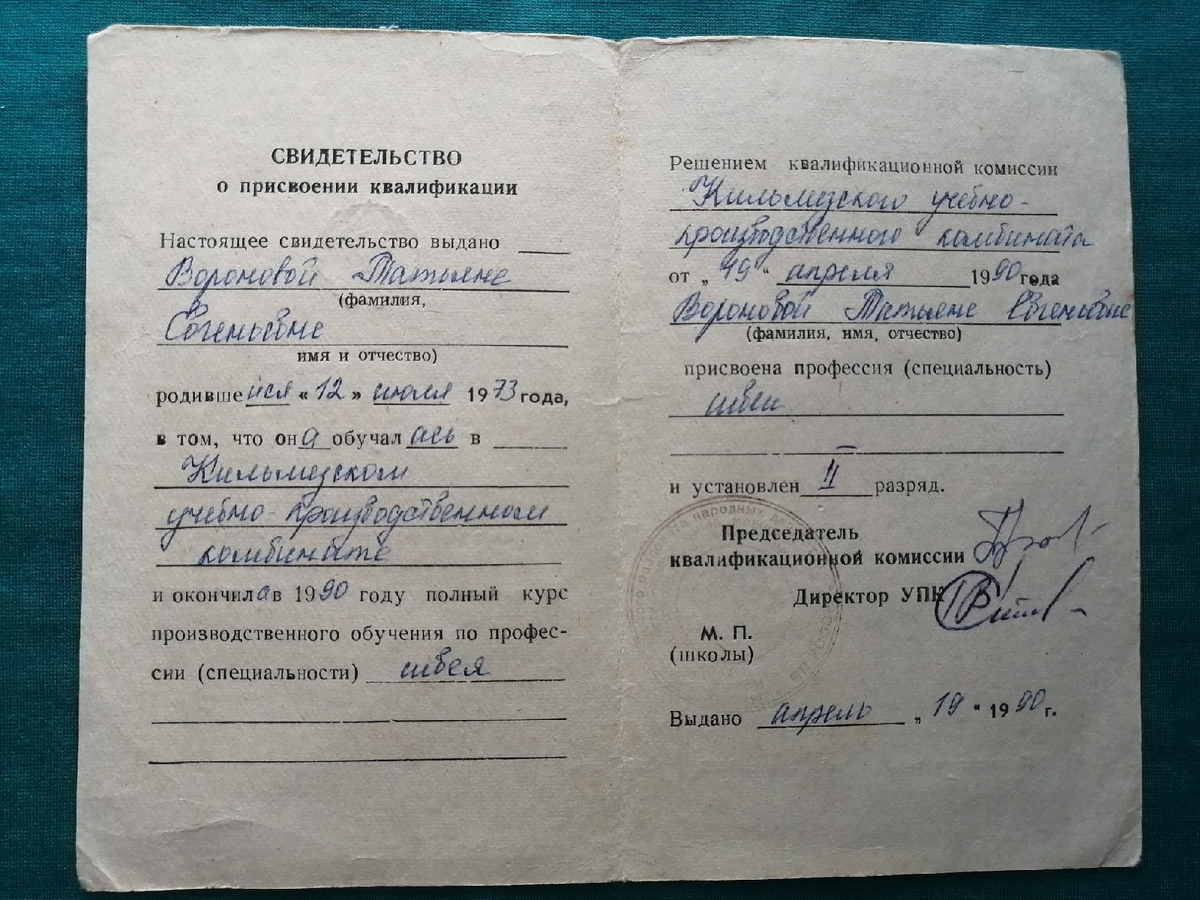 СВИДЕТЕЛЬСТВО
о присвоении квалификации
Настоящее свидетельство выдано
Вороновой Татьяне
(фамилия,
Евгеньевне
имя и отчество)
родившейся «12» июля 1973 года,
в том, что она обучалась в
Кильмезском
учебно-производственном
комбинате
и окончила в 1990 году полный курс
производственного обучения по профес-
сии (специальности) швея
Решением квалификационной комиссии
Кильмезского учебно-
производственного комбината
от „19“ апреля 1990 года
Вороновой Татьяне Евгеньевне
(фамилия, имя, отчество)
присвоена профессия (специальность)
швеи
—
и установлен II разряд.
Председатель
квалификационной комиссии
Директор УПК
М. П.
(школы)
Выдано апрель „19“ 1990 г.
народных